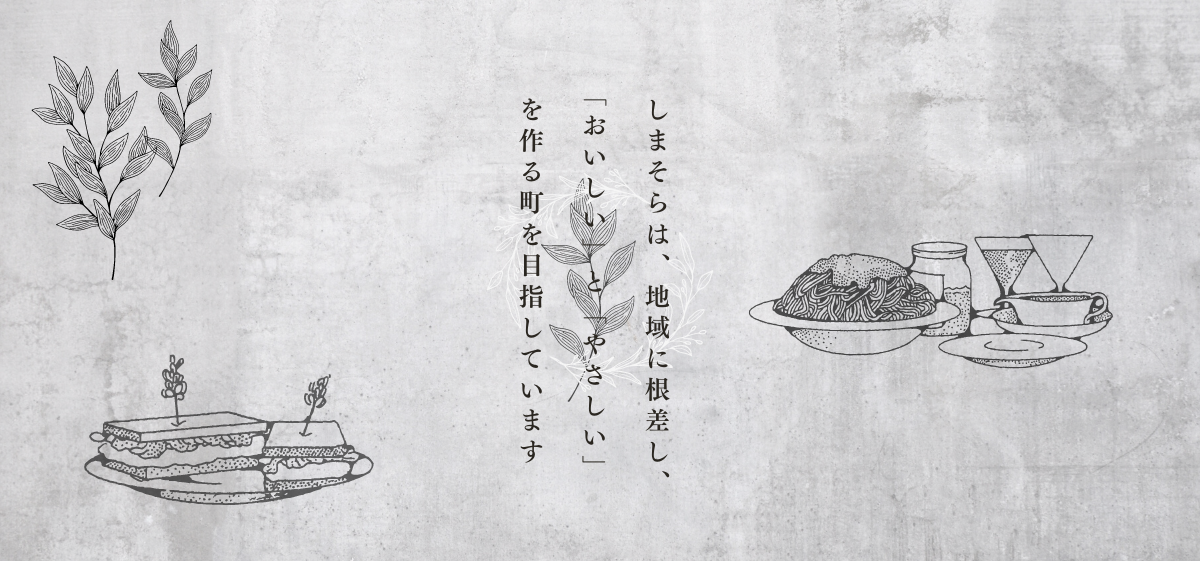 しまそらは、地域に根差し、
「おいしい」と「やさしい」
を作る町を目指しています